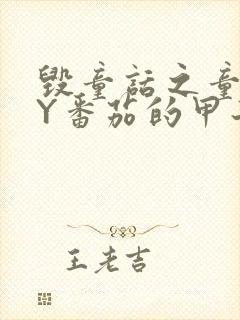 毁童话之童
Y番茄的甲
王老吉